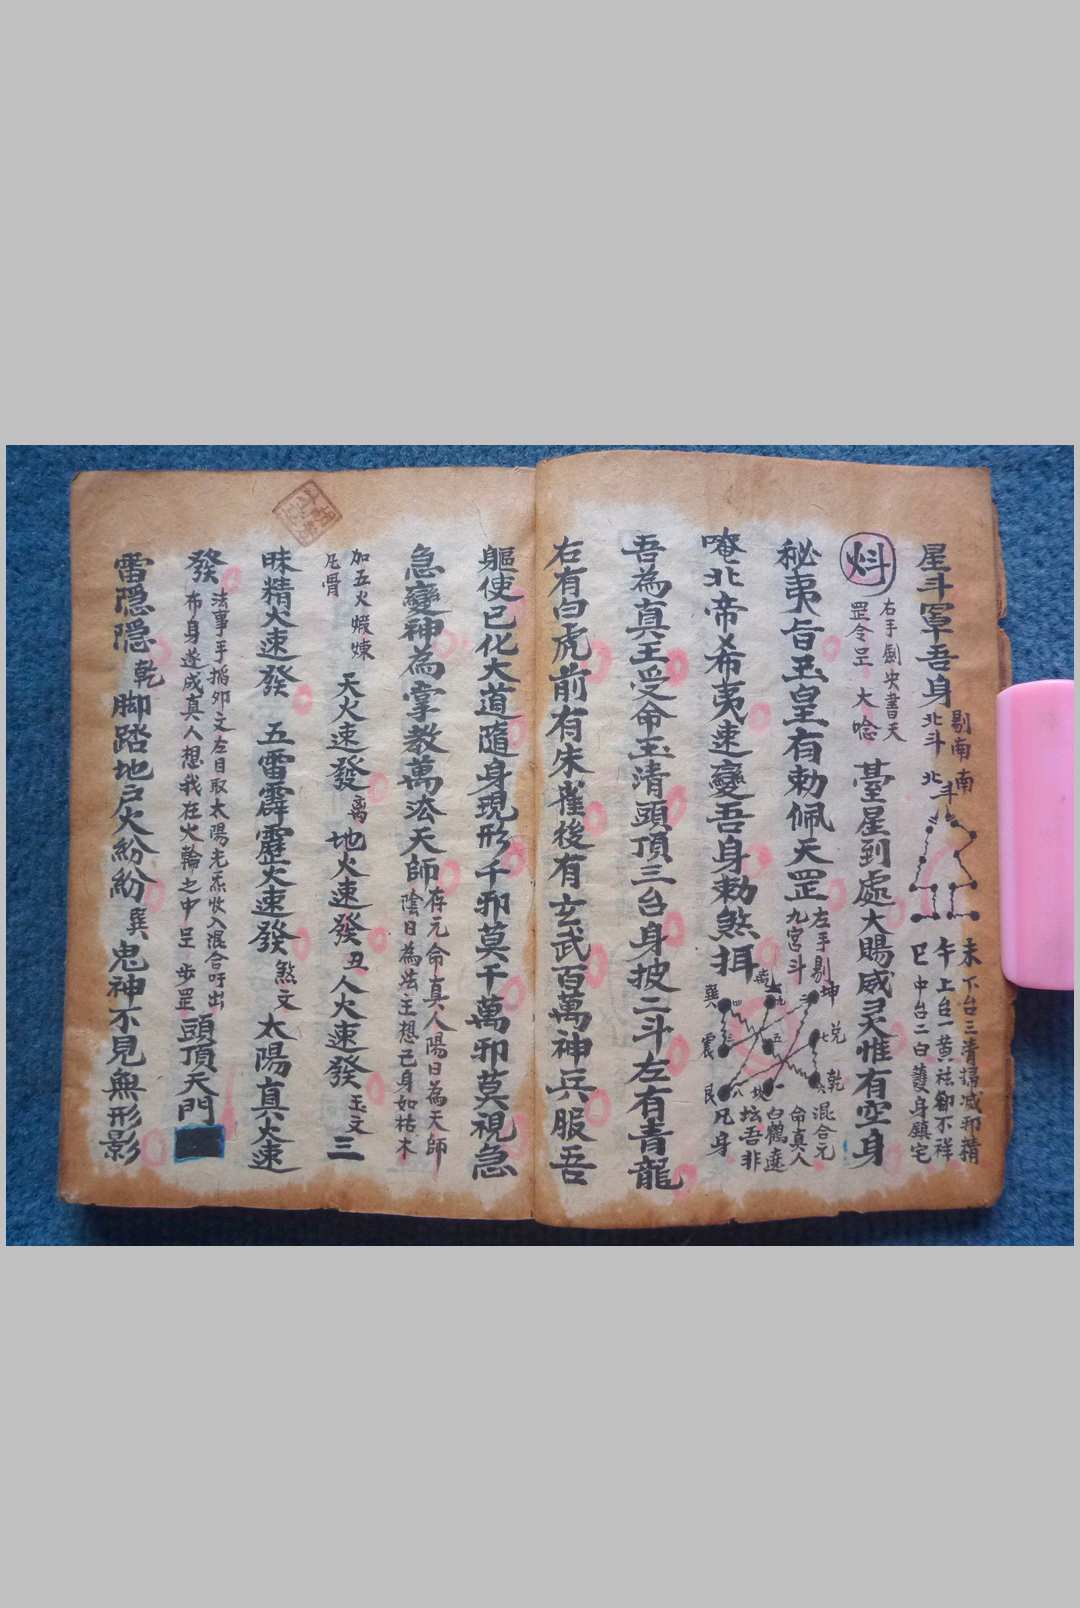 星斗罩吾身
北斗
剔南
北斗
南
未下台三清掃减邪精
午上台一黄祛卻不祥
巳中台二白護身鎮宅
㪳
右手劍央書天
罡令呈 大唸
臺星到處大賜威灵惟有空身
秘夷旨玉皇有勅佩天罡
左手剔
九宮斗
坤
兑
乾
巽
震
艮
九
二
七
五
四
三
八
坎一
六
混合元
命真人
白鶴遶
坛吾非
凡身
唵北帝希夷速變吾身勅煞揖
吾為真王受命玉清頭頂三台身披二斗左有青龍
右有白虎前有朱雀後有玄武百萬神兵服吾
軀使已化大道隨身現形千邪莫干萬邪莫視急
急變神為掌教萬法天師
存元命真人陽日為天師
陰日為法主想己身如枯木
加五火煅煉
凡骨
天火速發
离
地火速發
丑
人火速發
玉文
三
昧精火速發 五雷霹靂火速發
煞文
太陽真火速
發
法事手搯夘文左目取太陽光炁收入混合吁出
布身遂成真人想我在火輪之中呈步罡
頭頂天門
雷隠隠
乾
脚踏地户火紛紛
巽
鬼神不見無形影